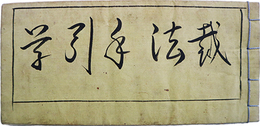 裁法手引学